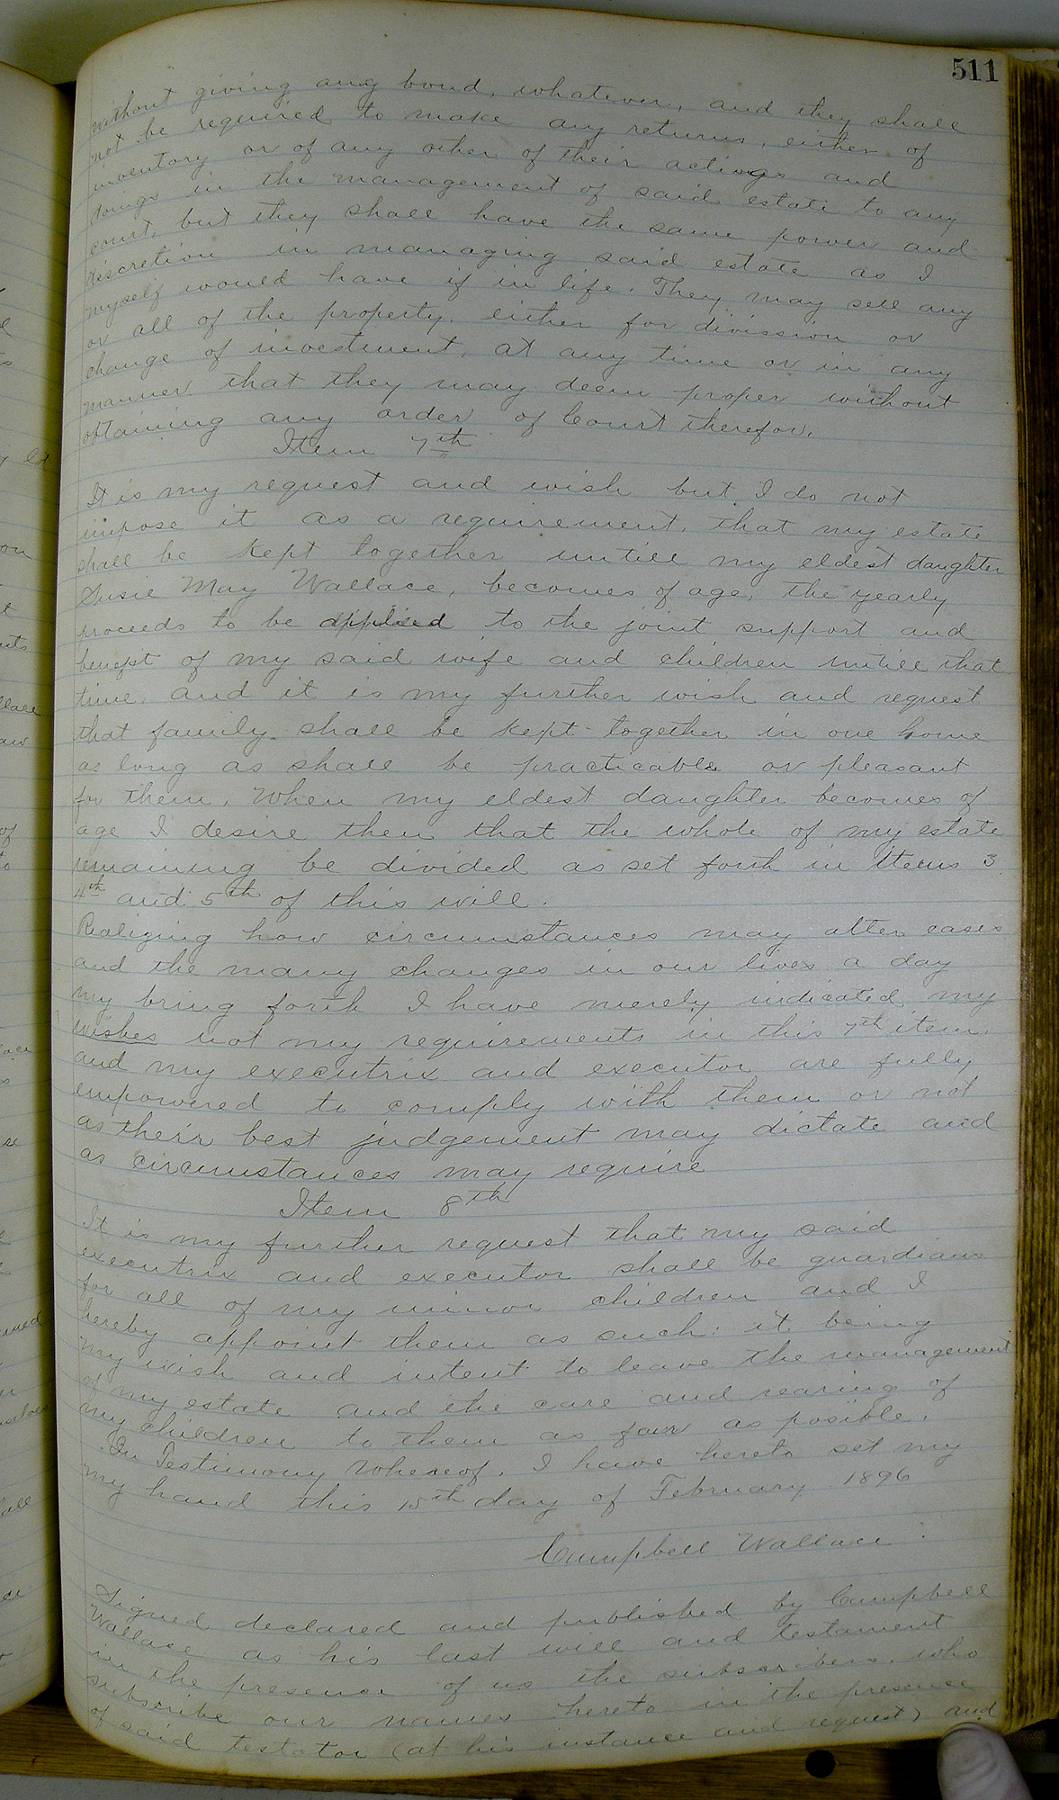 511
without giving any bond, whatever, and they shall
not be required to make any returns, either of
inventory or of any other of their actings and
doings in the management of said estate to any
court, but they shall have the same power and
discretion in managing said estate as I
myself would have if in life. They may sell any
or all of the property, either for division or
change of investment, at any time or in any
manner that they may deem proper without
obtaining any order of Court therefor.
Item 7th
It is my request and wish but I do not
impose it as a requirement, that my estate
shall be kept together untill my eldest daughter
Susie May Wallace, becomes of age, the yearly
proceeds to be applied to the joint support and
benefit of my said wife and children untill that
time, and it is my further wish and request
that family shall be kept together in one home
as long as shall be practicable or pleasant
for them. When my eldest daughter becomes of
age I desire then that the whole of my estate
remaining be divided as set forth in Items 3
4th and 5th of this will.
Realizing how circumstances may alter cases
and the many changes in our lives a day
my bring forth I have merely indicated my
wishes not my requirements in this 7th item.
and my executrix and executor are fully
empowered to comply with them or not
as their best judgement may dictate and
as circumstances may require
Item 8th
It is my further request that my said
executrix and executor shall be guardians
for all of my minor children and I
hereby appoint them as such: it being
my wish and intent to leave the management
of my estate and the care and rearing of
my children to them as far as posible.
In Testimony Whereof, I have hereto set my
my hand this 15th day of February 1896
Campbell Wallace
Signed declared and published by Campbell
Wallace as his last will and testament
in the presence of us the subscribers, who
subscribe our names hereto in the presence
of said testator (at his instance and request) and